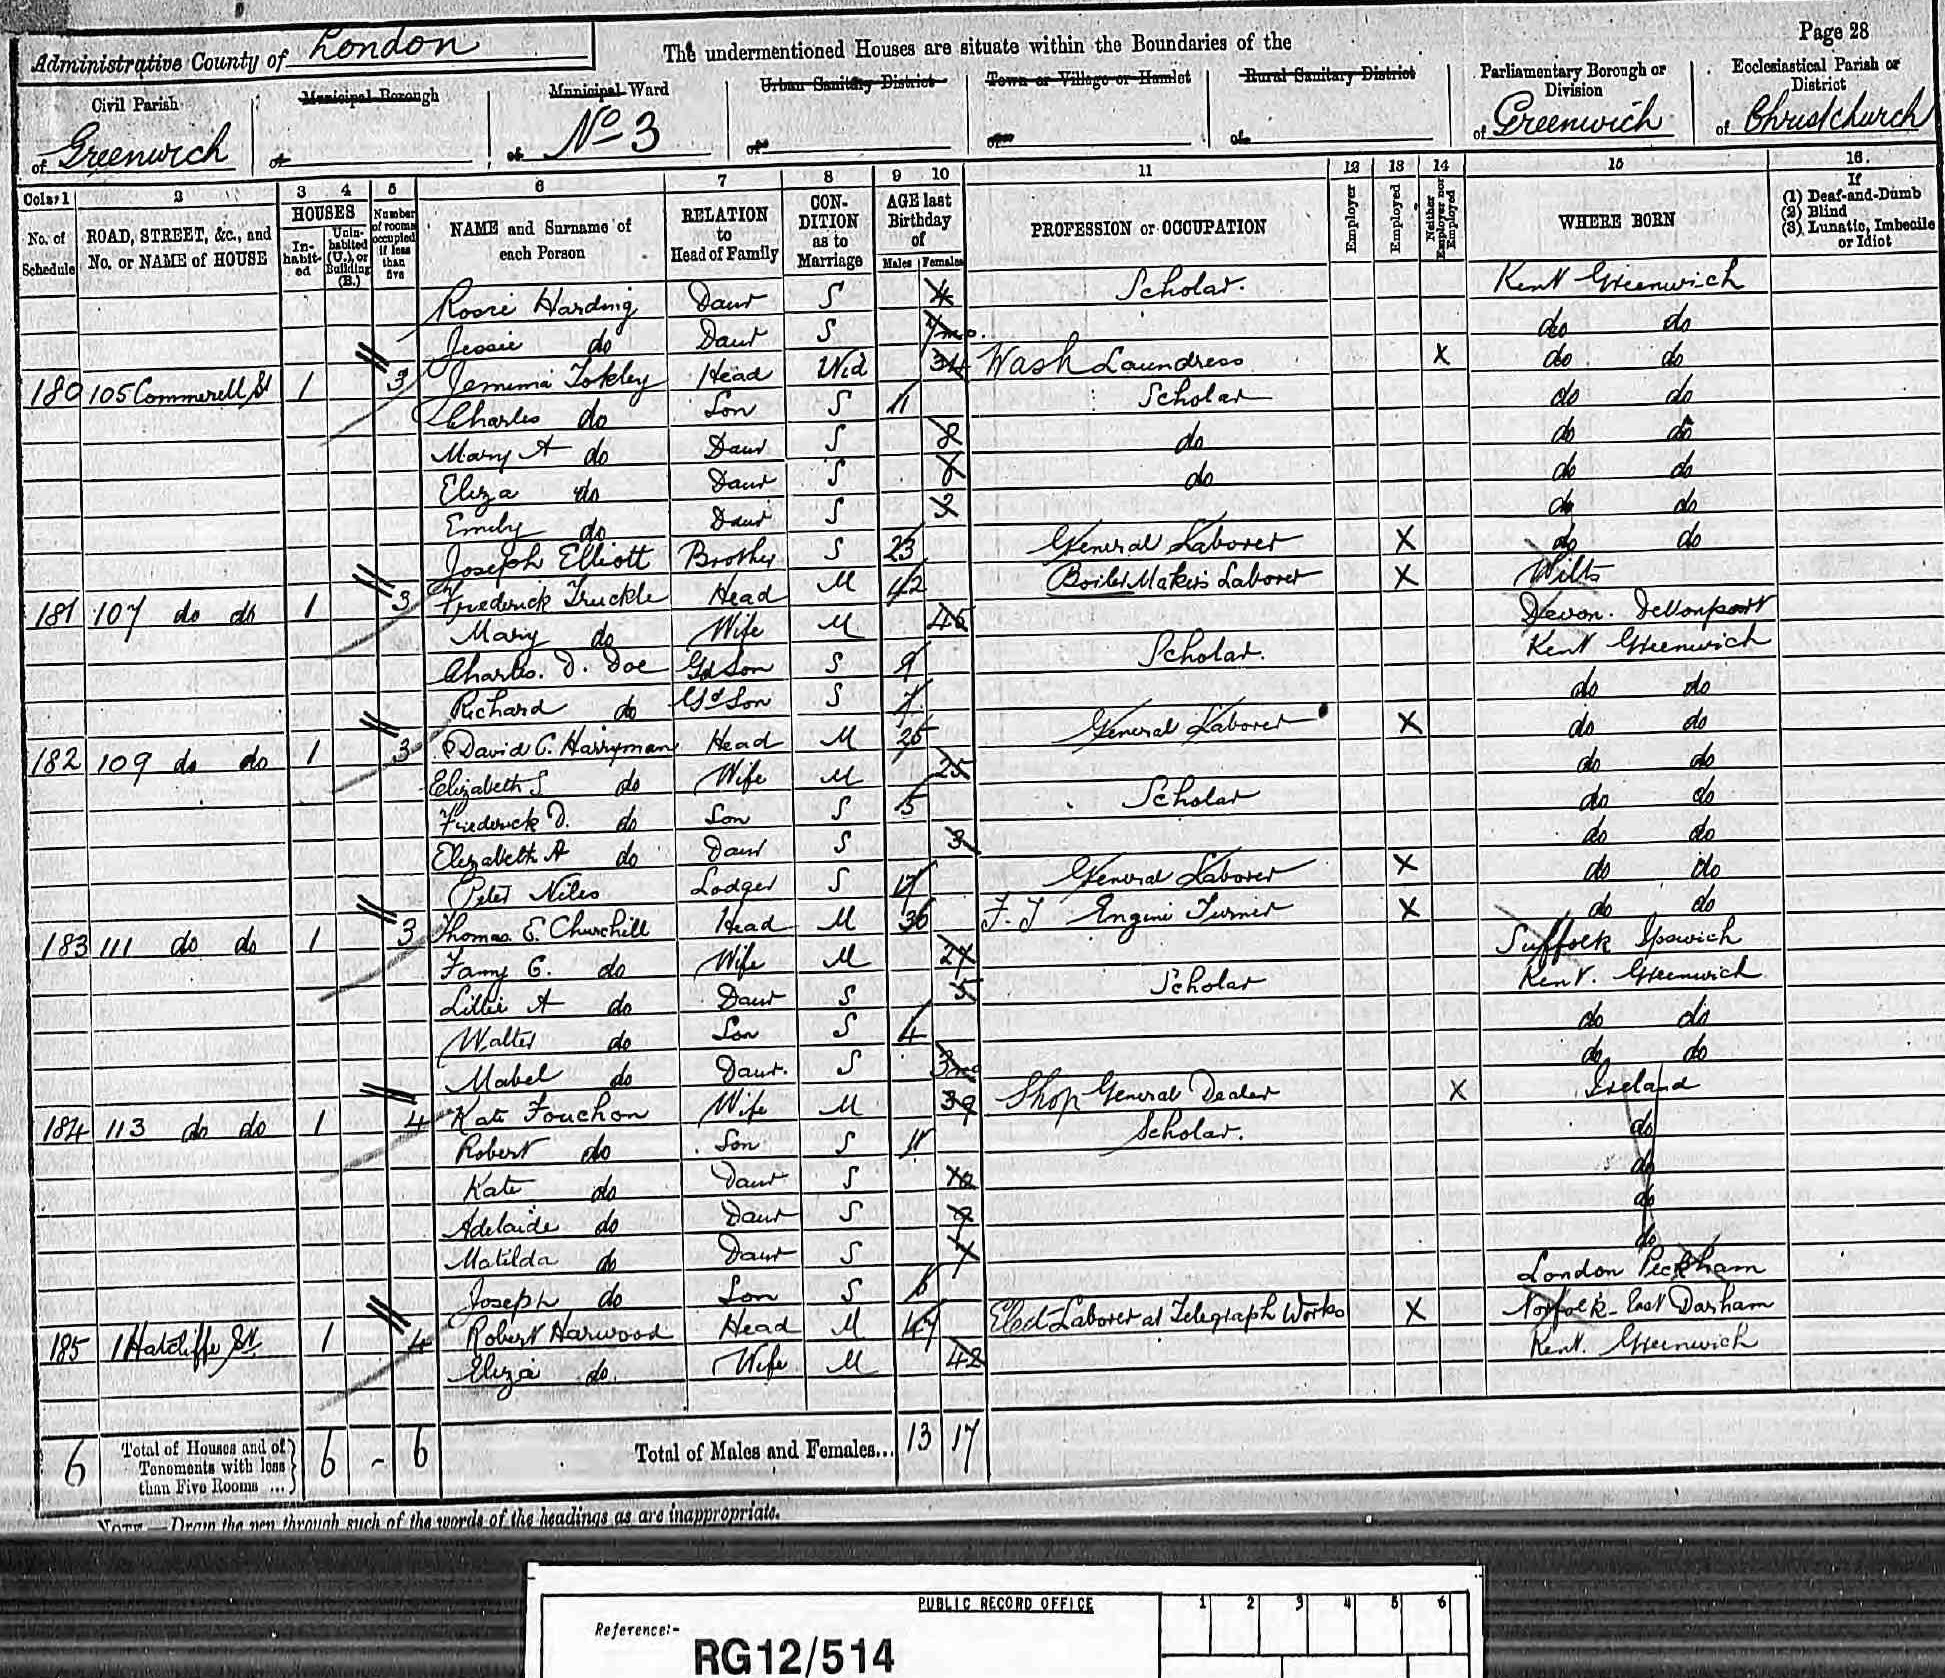 Page 28
Administrative County of London
The undermentioned Houses are situate within the Boundaries of the
Civil Parish
of Greenwich
Municipal Borough
of
Municipal Ward
of No 3
Urban Sanitary District
of
Town or Village or Hamlet
of
Rural Sanitary District
of
Parliamentary Borough or Division
of Greenwich
Ecclesiastical Parish or District
of Christchurch
Cols. 1 2 3 4 5 6 7 8 9 10 11 12 13 14 15 16.
No. of Schedule
ROAD, STREET, &c., and No. or NAME of HOUSE
HOUSES
In-habit-ed
Unin-habited (U.), or Building (B.)
Number of rooms occupied if less than five
NAME and Surname of each Person
RELATION to Head of Family
CON-DITION as to Marriage
AGE last Birthday of
Males Females
PROFESSION or OCCUPATION
Employer
Employed
Neither Employer nor Employed
WHERE BORN
If
(1) Deaf-and-Dumb
(2) Blind
(3) Lunatic, Imbecile or Idiot
Rosie Harding Daur S 4 Scholar. Kent Greenwich
Jessie do Daur S do do
180 105 Commerell St 1 3 Jemima Tokley Head Wid 34 Wash Laundress X do do
Charles do Son S 11 Scholar do do
Mary A do Daur S 8 do do do
Eliza do Daur S do do do
Emily do Daur S do do
Joseph Elliott Brother S 23 General Laborer X do do
181 107 do do 1 3 Frederick Truckle Head M 42 Boiler Makers Laborer X Wilts
Mary do Wife M 45 Devon. Devonport
Charles. D. Doe Gd Son S 9 Scholar. Kent Greenwich
Richard do Gd Son S 7 do do
182 109 do do 1 3 David C. Harryman Head M 25 General Laborer X do do
Elizabeth S do Wife M 25 do do
Frederick D. do Son S 5 Scholar do do
Elizabeth A do Daur S 3 do do
Peter Niles Lodger S 17 General Laborer X do do
183 111 do do 1 3 Thomas E. Churchill Head M 36 F. T Engine Turner X do do
Fanny E. do Wife M 27 Suffolk Ipswich
Lillie A do Daur S 5 Scholar Kent. Greenwich
Walter do Son S 4 do do
Mabel do Daur. S 3mo do do
184 113 do do 1 4 Kate Fouchon Wife M 39 Shop General Dealer X Ireland
Robert do Son S 11 Scholar. do
Kate do Daur S 10 do
Adelaide do Daur S 9 do
Matilda do Daur S 7 do
Joseph do Son S 6 London Peckham
185 1 Hatcliffe St. 1 4 Robert Harwood Head M 47 Laborer at Telegraph Works X Norfolk East Darham
Eliza do. Wife M 42 Kent. Greenwich
6 Total of Houses and of Tenements with less than Five Rooms ... 6 - 6 Total of Males and Females... 13 17
NOTE.—Draw the pen through such of the words of the headings as are inappropriate.
PUBLIC RECORD OFFICE
1 2 3 4 5 6
Reference:-
RG 12/514